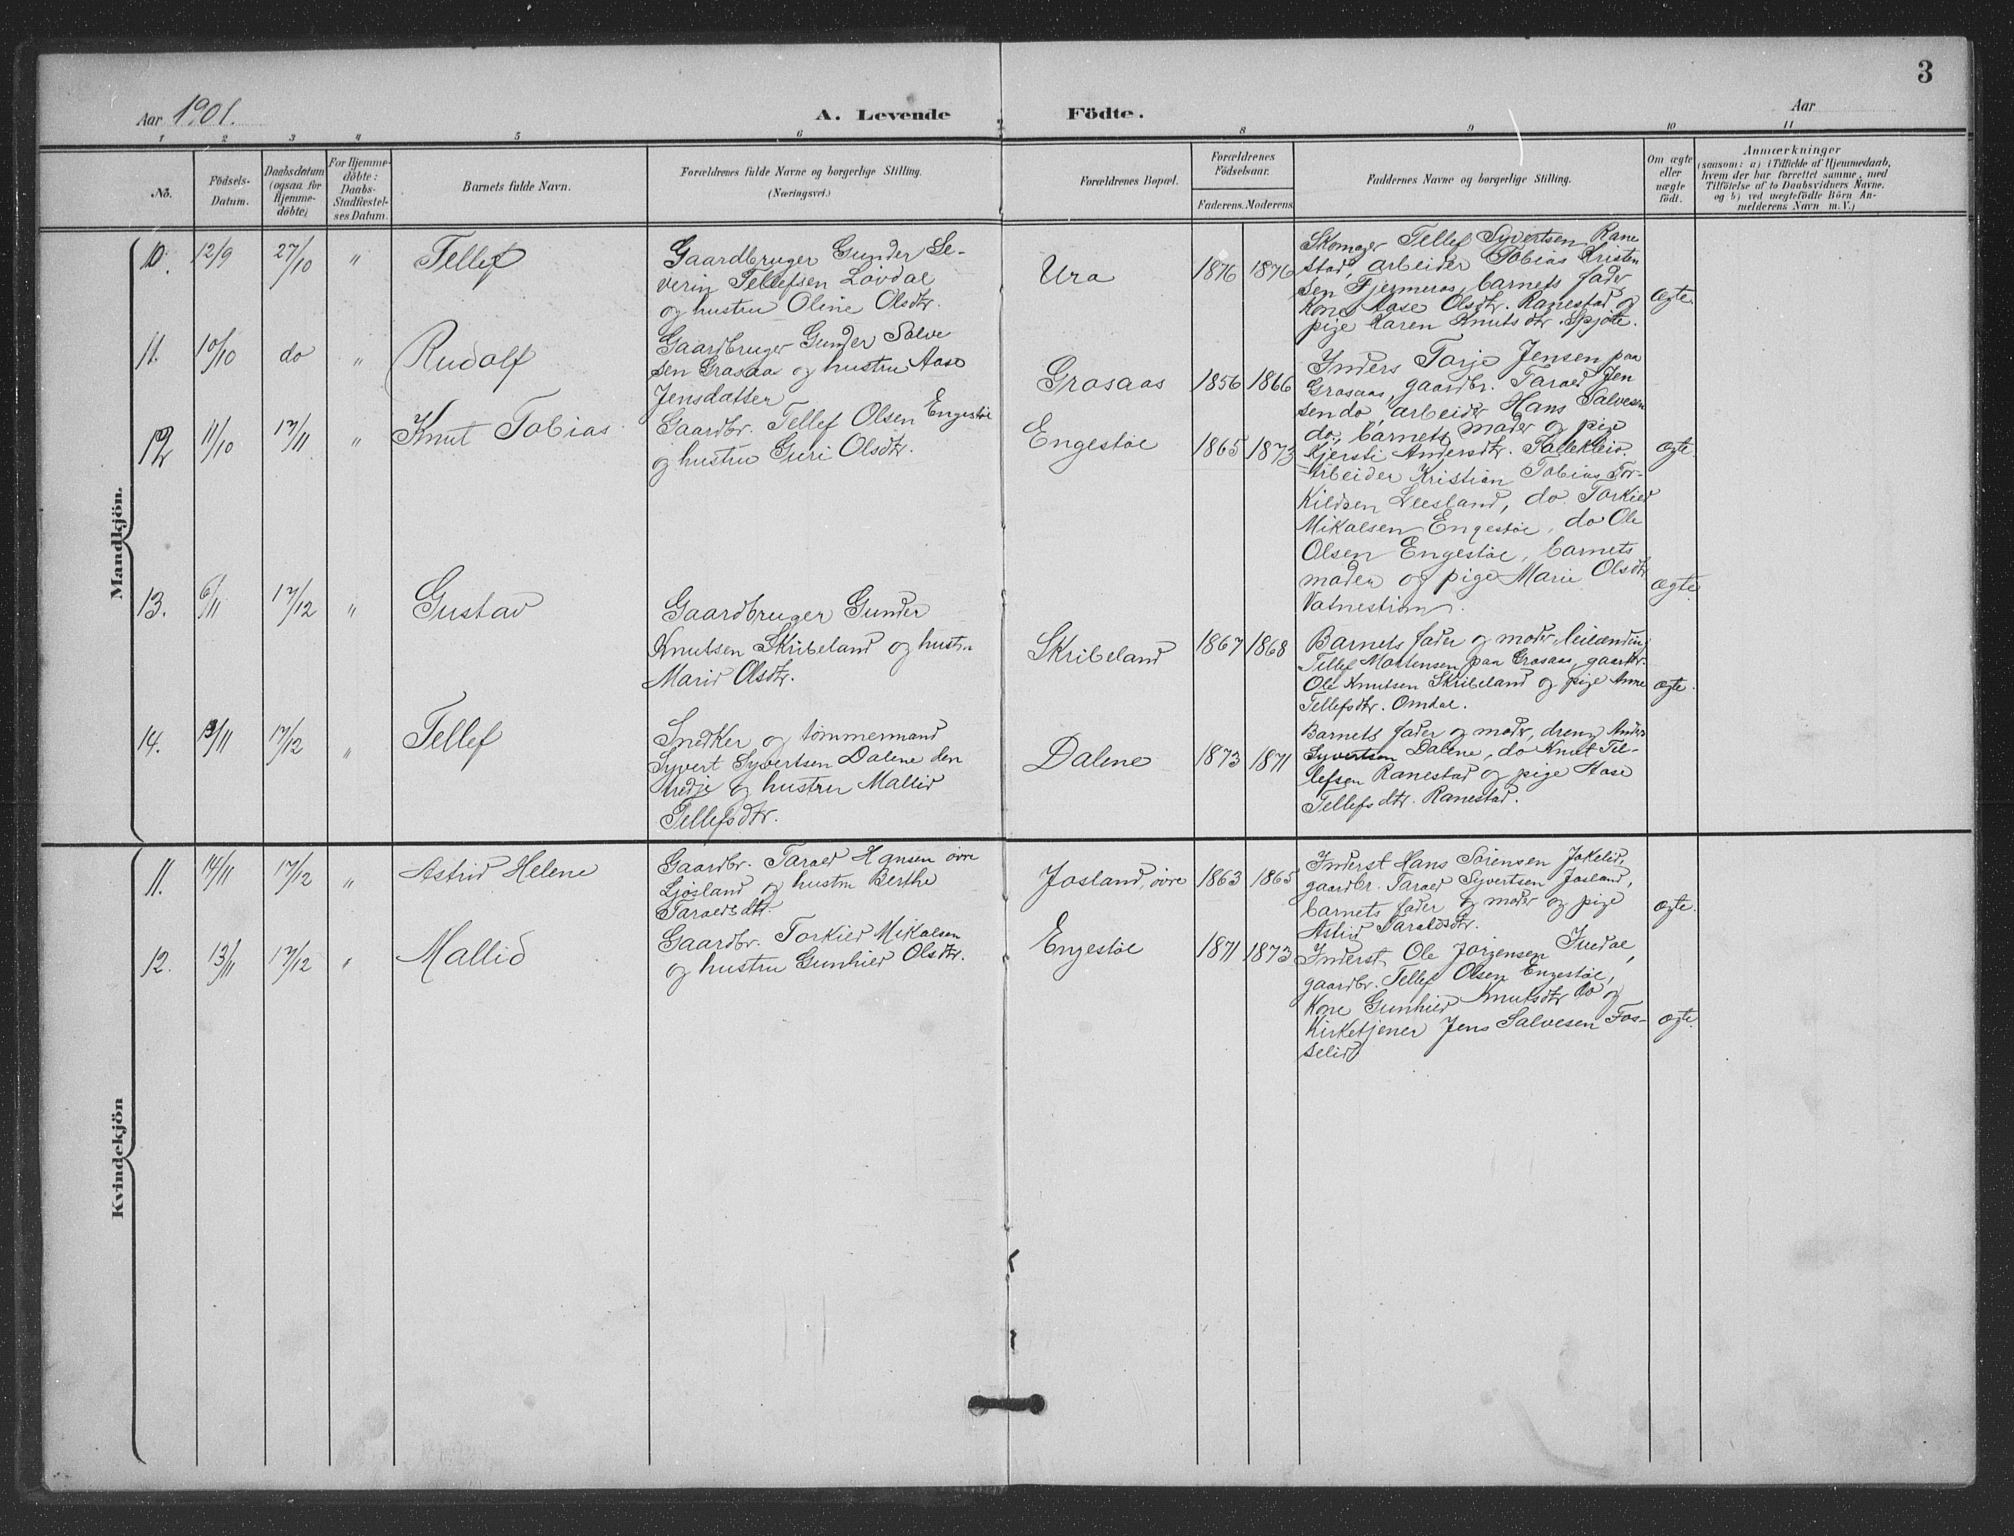 3
Aar 1901.
A. Levende Födte.
Aar
1 2 3 4 5 6 8 9 10 11
Nö.
Födsels-
Datum.
Daabsdatum
(ogsaa for
Hjemme-
döbte)
For Hjemme-
döbte:
Daabs-
Stadfæstel-
ses Datum.
Barnets fulde Navn.
Forældrenes fulde Navne og borgerlige Stilling.
(Næringsvei.)
Forældrenes Bopæl.
Forældrenes
Födselsaar.
Faderens. Moderens.
Faddernes Navne og borgerlige Stilling.
Om ægte
eller
uægte
födt.
Anmærkninger
(saasom: a) i Tilfælde af Hjemmedaab,
hvem der har forrettet samme, med
Tilföielse af to Daabsvidners Navne.
og b) ved uægtefödte Börn An-
melderens Navn m. V.)
Mandkjön.
10. 12/9 27/10 " Tellef
Gaardbruger Gunder Se-
verin Tellefsen Løvdal
og hustru Oline Olsdtr.
Ura 1876 1876
Skomager Tellef Syvertsen Rane
stad, arbeider Tobias Kristen
sen Fjermeros, barnets fader,
Kone Aase Olsdtr. Ranestad og
pige Karen Knutsdtr. Spjøte.
ægte.
11. 10/10 do " Rudolf
Gaardbruger Gunder Salve
sen Grosaas og hustru Aase
Jensdatter
Grosaas 1856 1866
Inders Tarje Jensen paa
Grosaas, gaardbr. Tarald Jen
sen do, arbeider Hans Salvesen
do, barnets moder og pige
Kjersti Andersdtr. Fallekleiv.
ægte
12 11/10 17/11 " Knut Tobias
Gaardbr. Tellef Olsen Engestøl
og hustru Guri Olsdtr.
Engestøl 1865 1873
Arbeider Kristian Tobias Tor-
kildsen Leesland, do Torkild
Mikalsen Engestøl, do Ole
Olsen Engestøl, barnets
moder og pige Marie Olsdtr
Vatnestrøm.
ægte
13. 6/11 17/12 " Gustav
Gaardbruger Gunder
Knutsen Skribeland og hustru
Marie Olsdtr.
Skribeland 1867 1868
Barnets fader og moder, leilænding
Tellef Mortensen paa Grosaas, gaardbr.
Ole Knutsen Skribeland og pige Anne
Tellefsdtr. Omdal.
ægte.
14. 9/11 17/12 " Tellef
Snedker og tømmermand
Syvert Syvertsen Dalene den
tredje og hustru Mallid
Tellefsdtr.
Dalene 1873 1871
Barnets fader og moder, dreng Anders
Syvertsen Dalene, do Knut Tel-
lefsen Ranestad og pige Aase
Tellefsdtr. Ranestad.
Kvindekjön
11. 14/11 17/12 " Astrid Helene
Gaardbr. Tarald Hansen øvre
Ljosland og hustru Berthe
Taraldsdtr.
Josland, øvre 1863 1865
Inderst Hans Sørensen Jokelid,
gaardbr. Tarald Syvertsen Josland,
barnets fader og moder og pige
Astrid Taraldsdtr.
ægte.
12. 13/11 17/12 " Mallid
Gaardbr. Torkild Mikalsen
og hustru Gunhild Olsdtr.
Engestøl 1871 1873
Inderst Ole Jørgensen
gaardbr. Tellef Olsen Engestøl,
Kone Gunhild Knutsdtr do og
Kirketjener Jens Salvesen Fos-
selid
ægte.